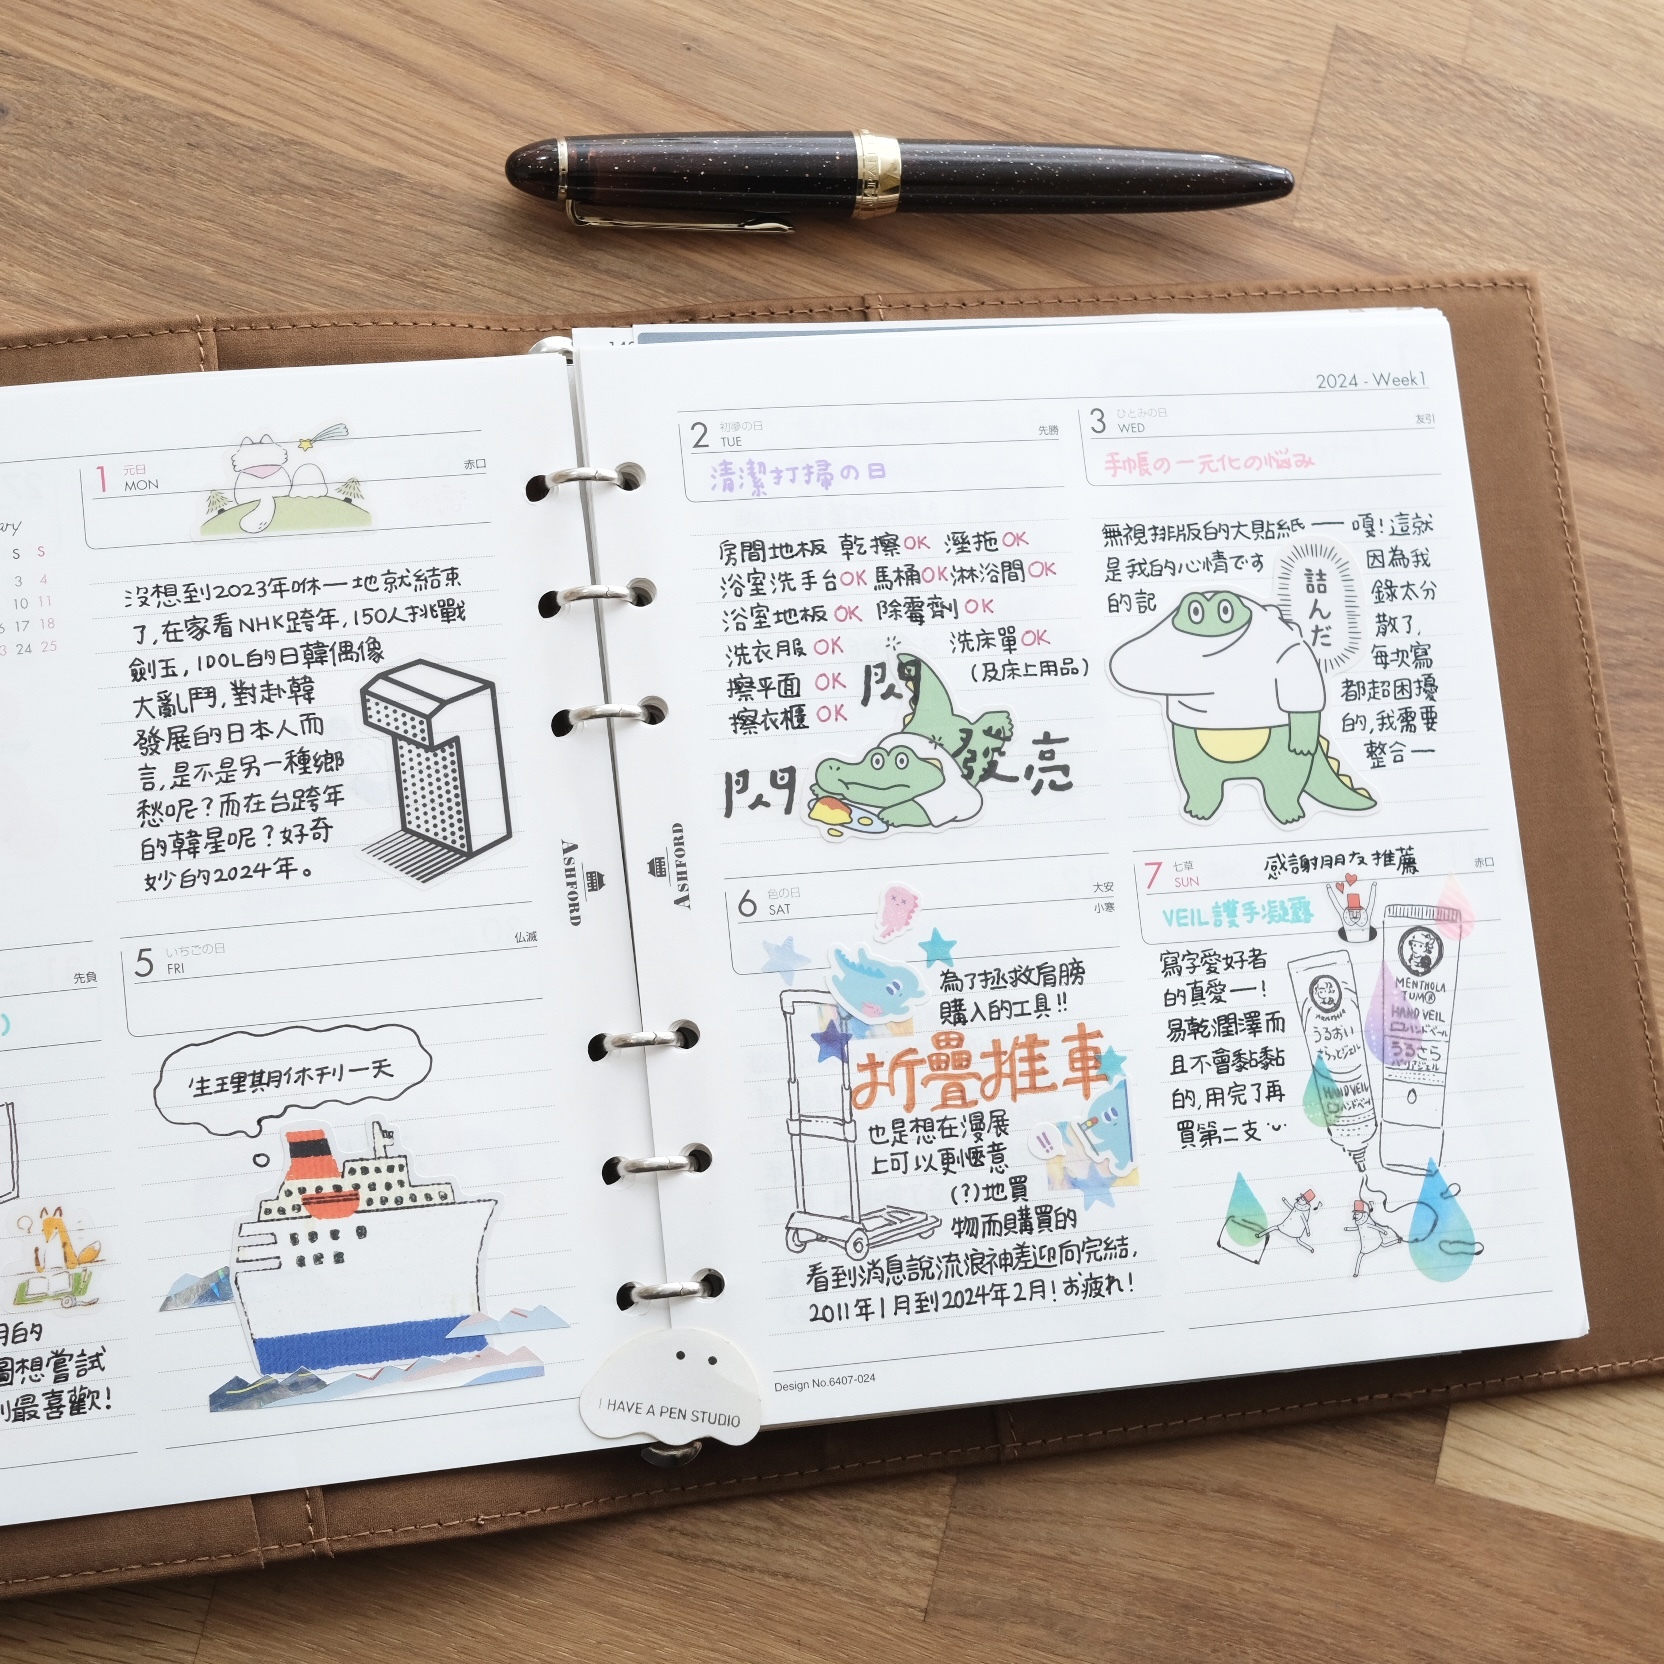 2024 - Week1
ary
S S
3 4
10 11
17 18
24 25
1 元日
MON
赤口
沒想到2023年咻一地就結束
了,在家看NHK跨年,150人挑戰
劍玉,IDOL的日韓偶像
大亂鬥,對赴韓
發展的日本人而
言,是不是另一種鄉
愁呢?而在台跨年
的韓星呢?好奇
妙的2024年。
先負
圖想嘗試
最喜歡!
5 いちごの日
FRI
仏滅
生理期休刊一天
ASHFORD
ASHFORD
2 初夢の日
TUE
先勝
清潔打掃の日
房間地板 乾擦OK 溼拖OK
浴室洗手台OK 馬桶OK 淋浴間OK
浴室地板 OK 除霉劑 OK
洗衣服 OK 洗床單OK
(及床上用品)
擦平面 OK
擦衣櫃 OK
閃
閃
發亮
3 ひとみの日
WED
友引
手帳の一元化の悩み
無視排版的大貼紙——
是我的心情です
的記
詰んだ
嘎!這就
因為我
錄太分
散了,
每次寫
都超困擾
的,我需要
整合一
6 色の日
SAT
大安
小寒
為了拯救肩膀
購入的工具!!
折疊推車
也是想在漫展
上可以更愜意
(?)地買
物而購買的
!!
看到消息說流浪神差迎向完結,
2011年1月到2024年2月!お疲れ!
7 七草
SUN
赤口
感謝朋友推薦
VEIL護手凝露
寫字愛好者
的真愛一!
易乾潤澤而
且不會黏黏
的,用完了再
買第二支
うるおい
さらっとジェル
HAND VEIL
ハンドベール
MENTHOLA
TUM®
HAND VEIL
ハンドベール
うるさら
バリアジェル
Design No.6407-024
I HAVE A PEN STUDIO